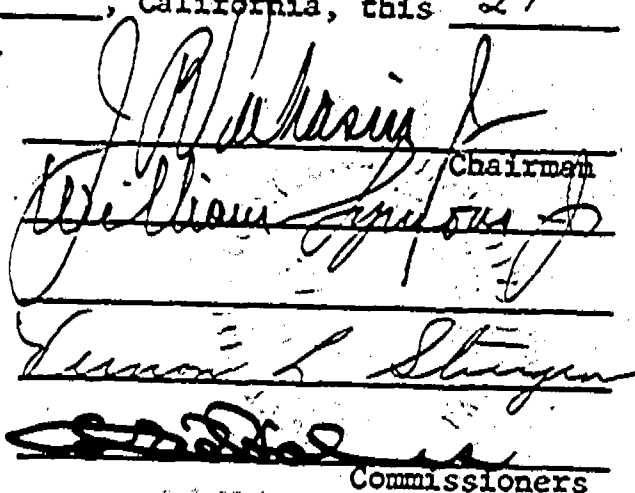 , California, this 27
J
Chairman
William Symons Jr
Vernon L Sturgeon
Commissioners